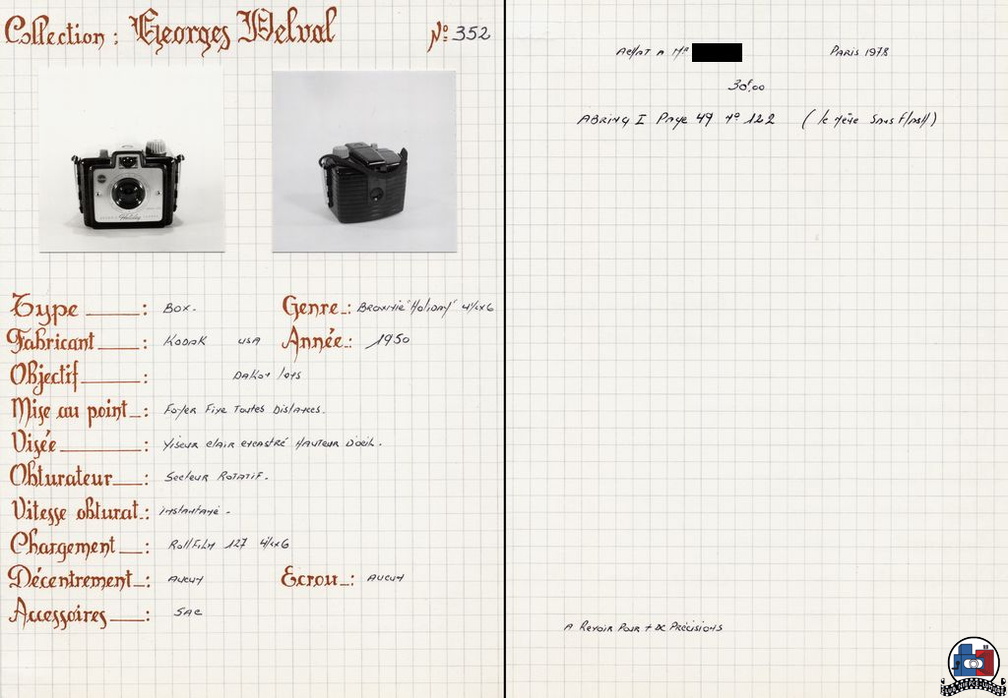 Collection : Georges Delval N° 352
Type : BOX.
Genre : BROWNIE "Holiday" 4x6
Fabricant : KODAK USA
Année : 1950
Objectif : DAKON lens
Mise au point : Foyer Fixe Toutes Distances.
Visée : Viseur clair encastré Hauteur D'oeil.
Obturateur : Secteur Rotatif.
Vitesse obturat. : instantané -
Chargement : Rollfilm 127 4x6
Décentrement : Aucun
Ecrou : Aucun
Accessoires : SAC
Achat a Mr PARIS 1978
30F,00
ABRING I Page 49 N° 122 ( le même Sans Flash)
A Revoir Pour + DE Précisions